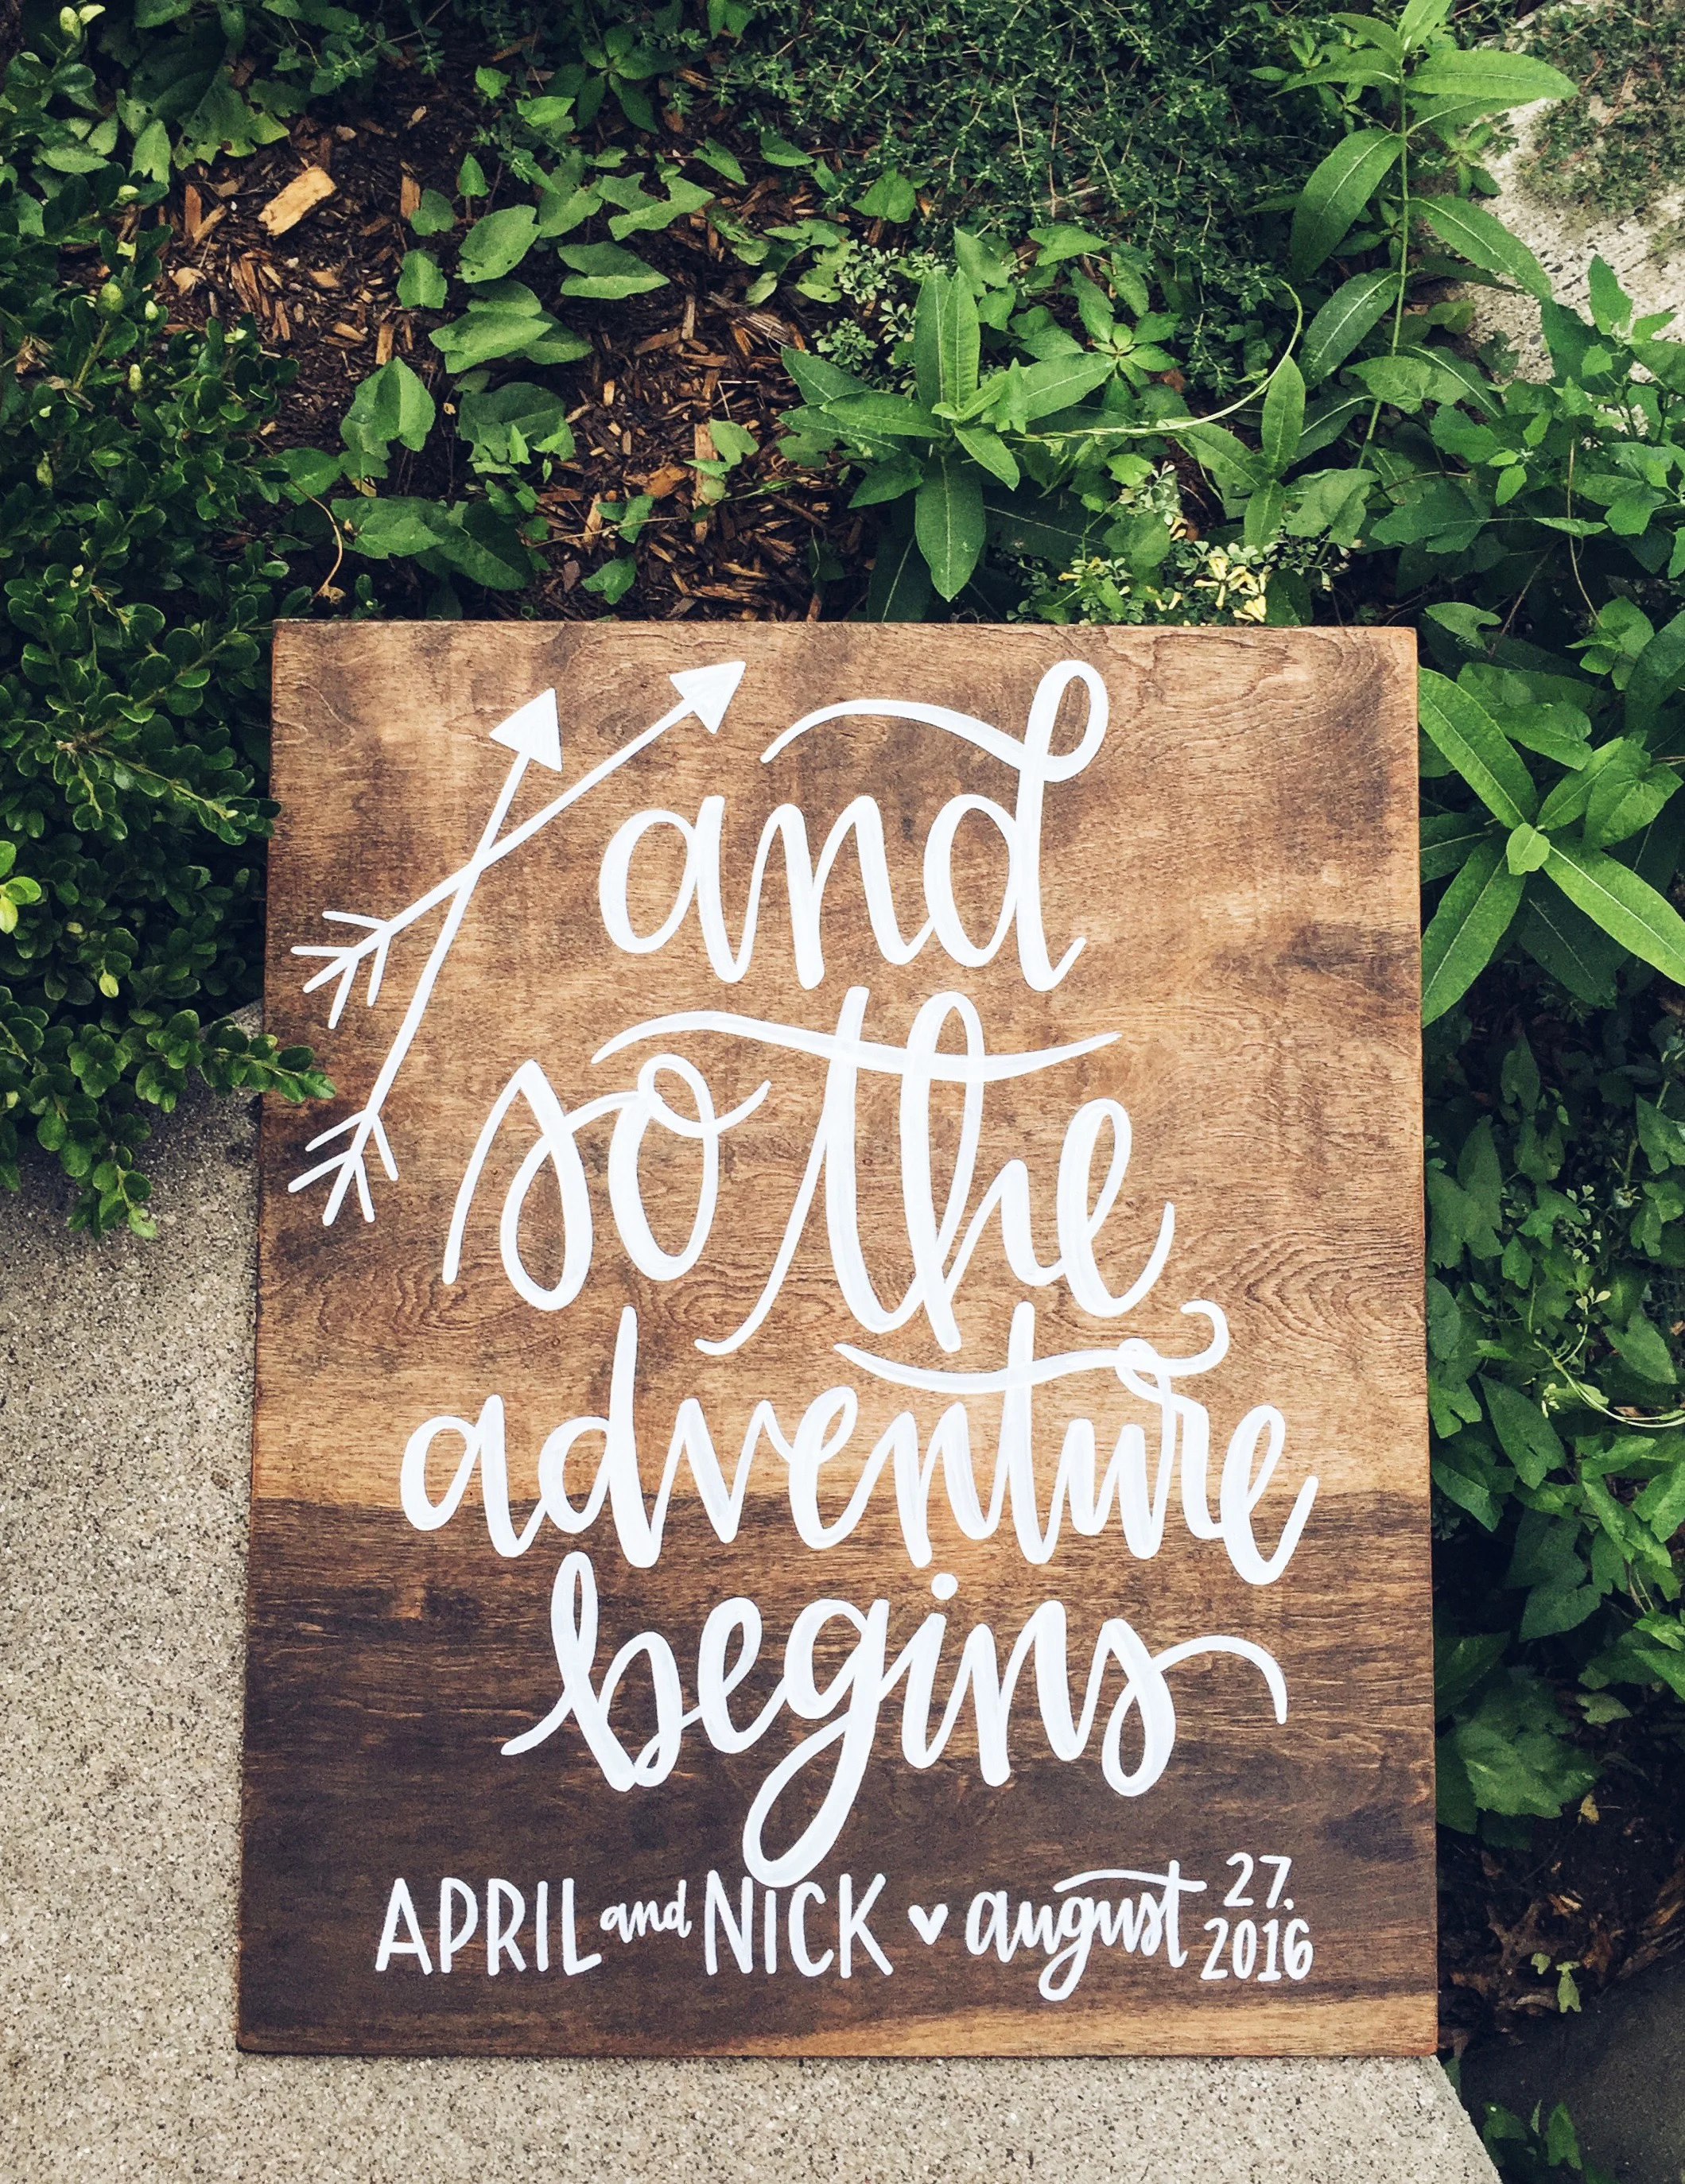 and
so the
adventure
begins
APRIL and NICK ♥ august 27. 2016